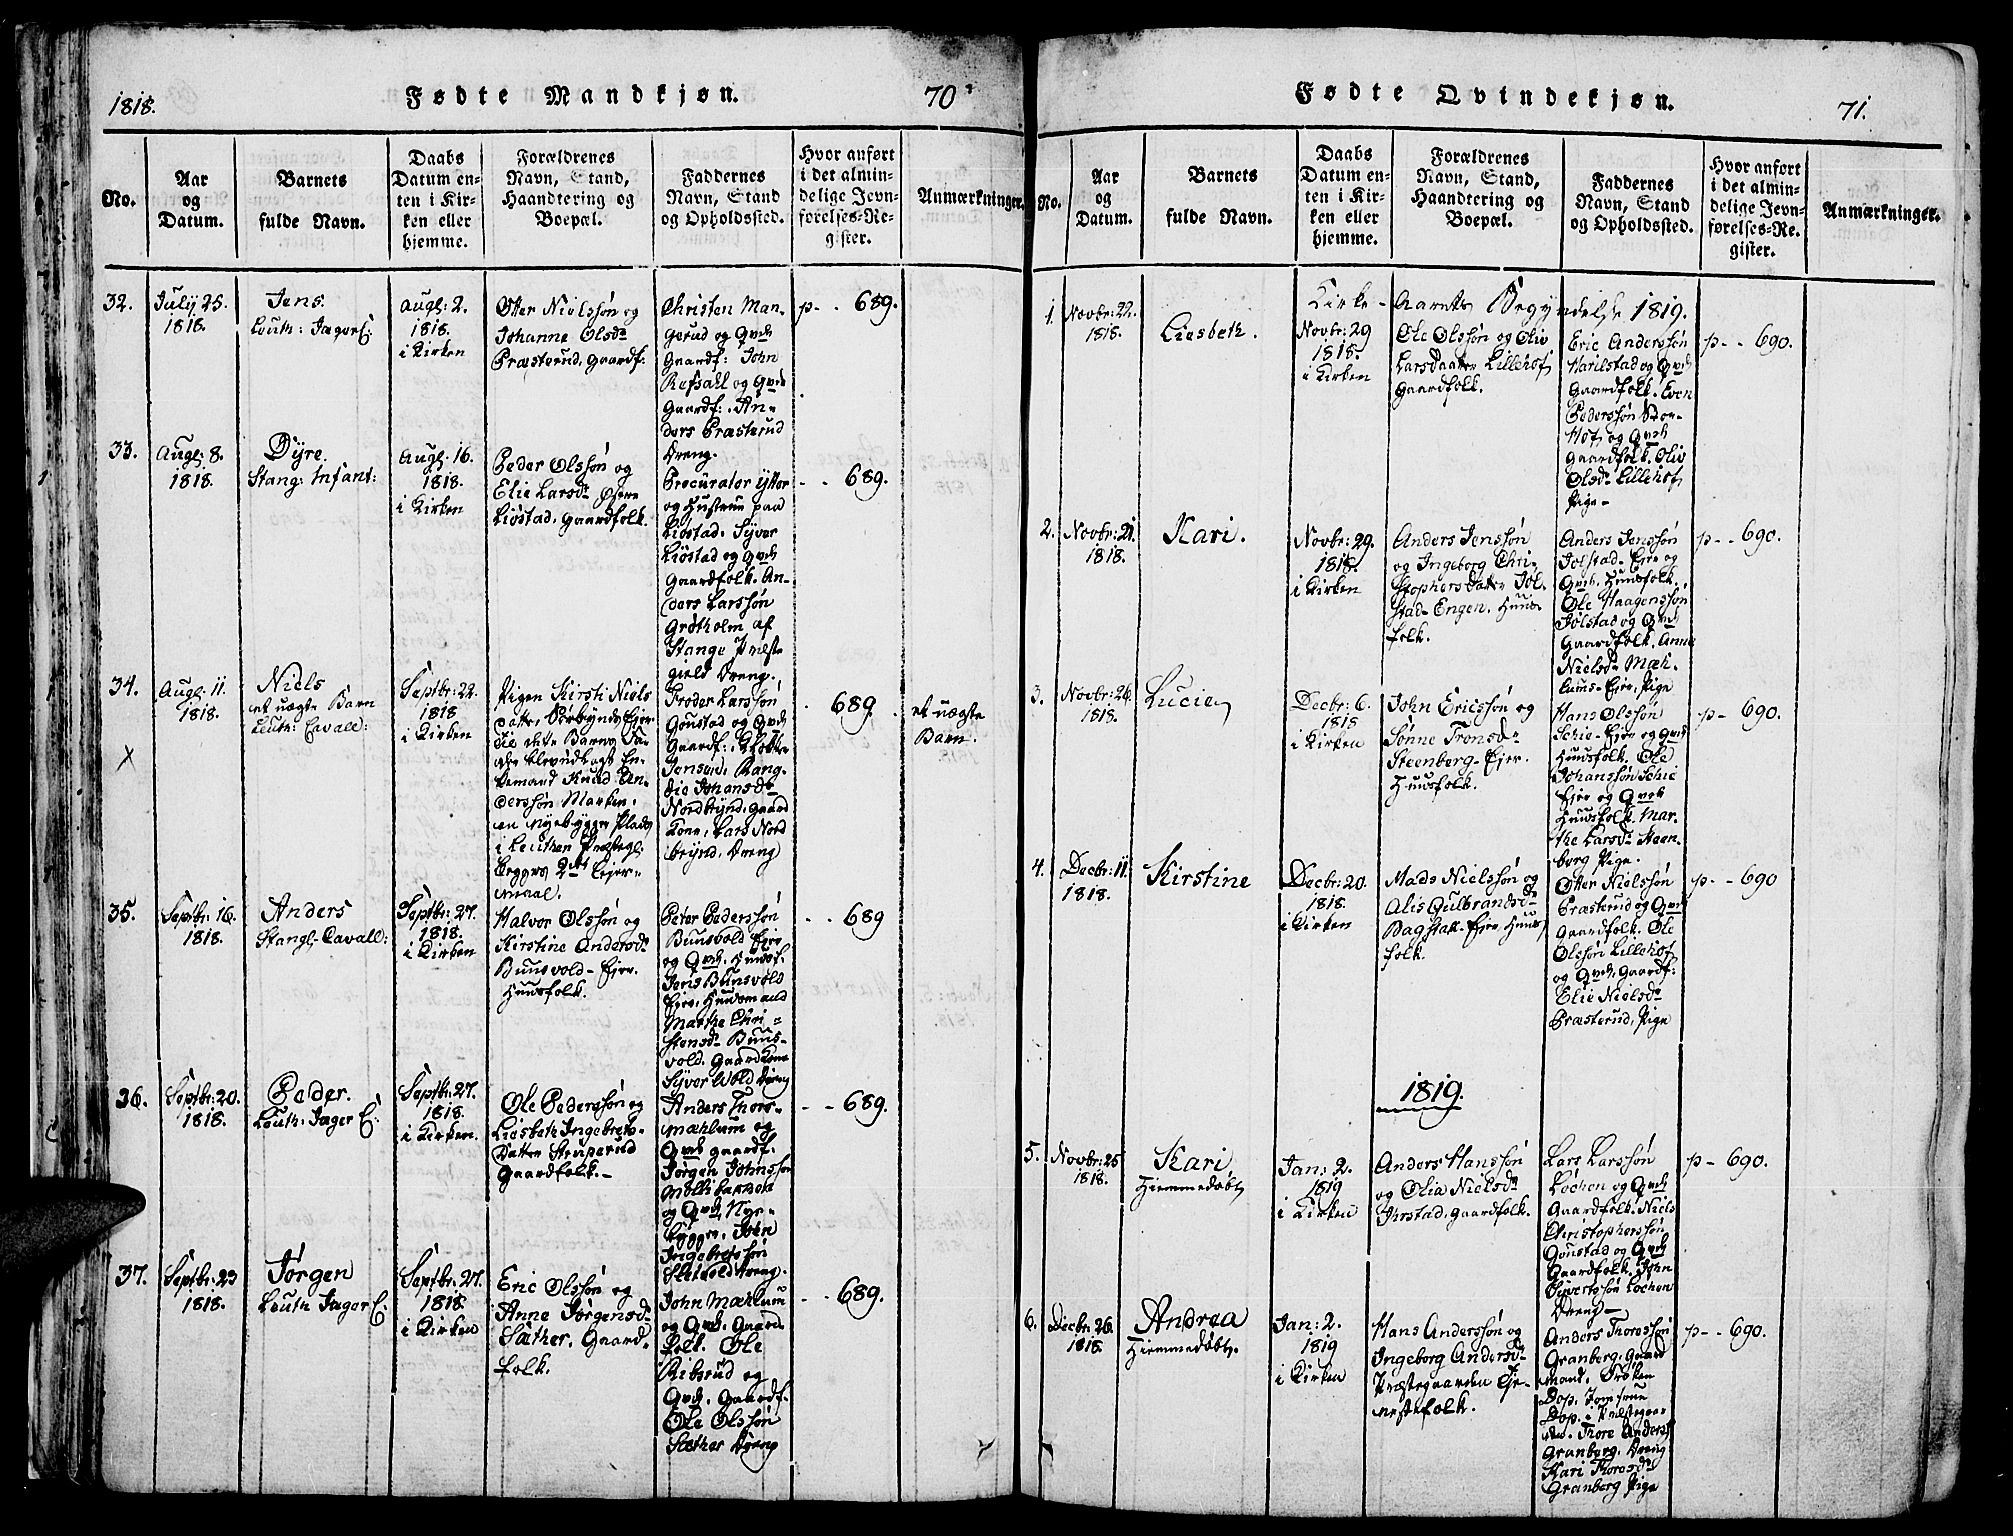 1818.
Fødte Mandkjøn.
70
No.
Aar
og
Datum.
Barnets
fulde Navn.
Daabs
Datum en-
ten i Kir-
ken eller
hjemme.
Forældrenes
Navn, Stand,
Haandtering og
Boepæl.
Faddernes
Navn, Stand
og Opholdssted.
Hvor anført
i det almin-
delige Jevn-
førelses-Re-
gister.
Anmærkninger.
32.
July 25.
1818.
Jens
Louth: Jæger C:
Augl: 2.
1818.
i Kirken
Otter Nielssøn og
Johanne Olsdr
Præsterud, gaardf:
Christen Man-
gerud og Qvde
Gaardf: John
Refsall og Qvde
Gaardf:. An-
ders Præsterud
Dreng.
p- . 689.
33.
Augl: 8.
1818.
Dyre.
Stang: Infant:
Augl: 16.
1818.
i Kirken
Peder Olssøn og
Elie Larsdr Øfre
Liøstad, gaardfolk.
Procurator Ytter
og Hustrue paa
Liøstad. Syver
Liøstad og Qvde
gaardfolk. An-
ders Larssøn
Grøtholm af
Stange Præste
gield Dreng.
- . 689.
34.
X
Augl: 11.
1818.
Niels
et uægte Barn
Leuth: Cavall:
Septbr: 22.
1818
i Kirken
Pigen Kirsti Niels
datter Nordbynd Eier
die dette Barns Fa-
der blev udlagt En-
kemand Knud An-
derssøn Marken,
en nyebygger Plads
i Leuthen Præstegl:
Begges 2det Leier-
maal.
Peder Larssøn
Goustad og Qvde
Gaardf:.
Jensrud. Rang-
die Johansdr
Nordbynd, gaard
Kone, Lars Nord
brynd, Dreng
. 689
et uægte
Barn.
35.
Septbr: 16.
1818.
Anders
Stangl-Cavall:
Septbr: 27.
1818.
i Kirken
Halvor Olssøn og
Kirstine Andersdr
Buusvold-Eier.
Huusfolk.
Peter Pederssøn
Buusvold Eier
og Qvde. Huusf.
Jens Buusvold
Eier, Huusmand
Marthe Chri-
stensdr Buus-
vold. Gaardkone
Syver Wold Dreng
- . 689
36.
Septbr: 20.
1818.
Peder.
Louth: Jæger C:
Septbr: 27.
1818.
i Kirken.
Ole Pederssøn og
Liesbeth Ingebrets-
Datter Struperud
Gaardfolk.-
Anders Thors-
mæhlum og
Qvde gaardf.
Jørgen Johnssøn
Møllibakken
og Qvde, Nye-
bygger. Iven
Ingebretssøn
Dreng.
- - 689.
37.
Septbr: 23
1818.
Jørgen
Leuth Jæger C:
Septbr: 27.
1818.
i Kirken
Eric Olssøn og
Anne Jørgensdr
Sæther. Gaard
folk.
John Mæhlum
og Qvde. Gaard
folk. Ole
Ribsrud og
Qvde. Gaardf.
Ole Olssøn
Sæther Dreng
- . 689.
Fødte Qvindekjøn.
71.
No.
Aar
og
Datum.
Barnets
fulde Navn.
Daabs
Datum en-
ten i Kir-
ken eller
hjemme.
Forældrenes
Navn, Stand,
Haandtering og
Boepæl.
Faddernes
Navn, Stand
og Opholdssted.
Hvor anført
i det almin-
delige Jevn-
førelses-Re-
gister.
Anmærkninger.
Kirke-Aarets Begyndelse 1819.
1.
Novbr: 22.
1818.
Liesbeth.
Novbr: 29
1818.
i Kirken
Ole Olssøn og Oliv
Larsdaatter Lillehof
gaardfolk.
Eric Anderssøn
Harilstad og Qvde
gaardfolk. Even
Pederssøn Stor-
Hof og Qvde
gaardfolk. Oliv
Olsdr Lillehof
Pige-
p- . 690.
2.
Novbr: 21.
1818.
Kari.
Novbr: 29.
1818.
i Kirken
Anders Jenssøn
og Ingeborg Chri-
stophersdatter Jøl-
stad-Engen, Huus-
folk.
Anders Jenssøn
Jølstad-Eier og
Qvde, Huusfolk.
Ole Haagenssøn
Jølstad og Qvde
Gaardfolk. Anne
Nielsdr Mæh-
lums-Eier, Pige
p- . 690.
3.
Novbr: 26.
1818.
Lucie
Decbr: 6.
1818
i Kirken
John Ericssøn og
Sønne Tronsdr
Steenberg-Eier.
Huusfolk.
Hans Olssøn
Schie-Eier og Qvde
Huusfolk. Ole
Johanssøn Schie
Eier og Qvde
Huusfolk. Mar-
the Larsdr Steen-
borg Pige.
p- 690.
4.
Decbr: 11.
1818.
Kirstine
Decbr: 20.
1818.
i Kirken
Mads Nielssøn og
Alis Gulbrandsdr
Bagstad-Eier Huus
folk.
Otter Nielssøn
Præsterud og Qvde
Gaardfolk. Ole
Olssøn Lillehof
og Qvde, gaardf:
Elie Nielsdr
Præsterud, Pige
p- - 690
1819.
5.
Novbr: 25
1818.
Kari
Hiemmedøbt
Jan: 2.
1819
i Kirken
Anders Hanssøn
og Olia Nielsdr
Jirstad, gaardfolk.
Lars Larssøn
Lochen og Qvde
Gaardfolk. Niels
Christophersøn
Goustad og Qvde
Gaardfolk. John
Sivertssøn Lochen
Dreng-
p- 690.
6.
Decbr: 26.
1818.
Andrea
Hiemmedøbt.
Jan: 2.
1819
i Kirken
Hans Anderssøn og
Ingeborg Andersdr
Præstegaarden Tje-
nestefolk.
Anders Thorssøn
Granberg. Gaard
mand. Frøken
Dop. Jomfrue
Dop. i Præstegaar
den. Thore Anders
Granberg. Dreng
Kari Thorsdr
Granberg Pige
p- . 690.